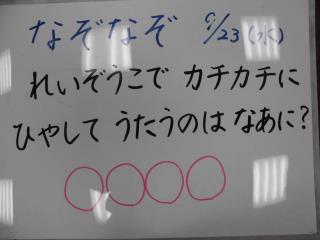 なぞなぞ 9/23(水)
れいぞうこで カチカチに
ひやして うたうのは なあに?
○○○○